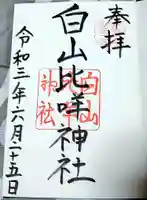 奉拝
白山比咩神社
令和三年六月二十五日